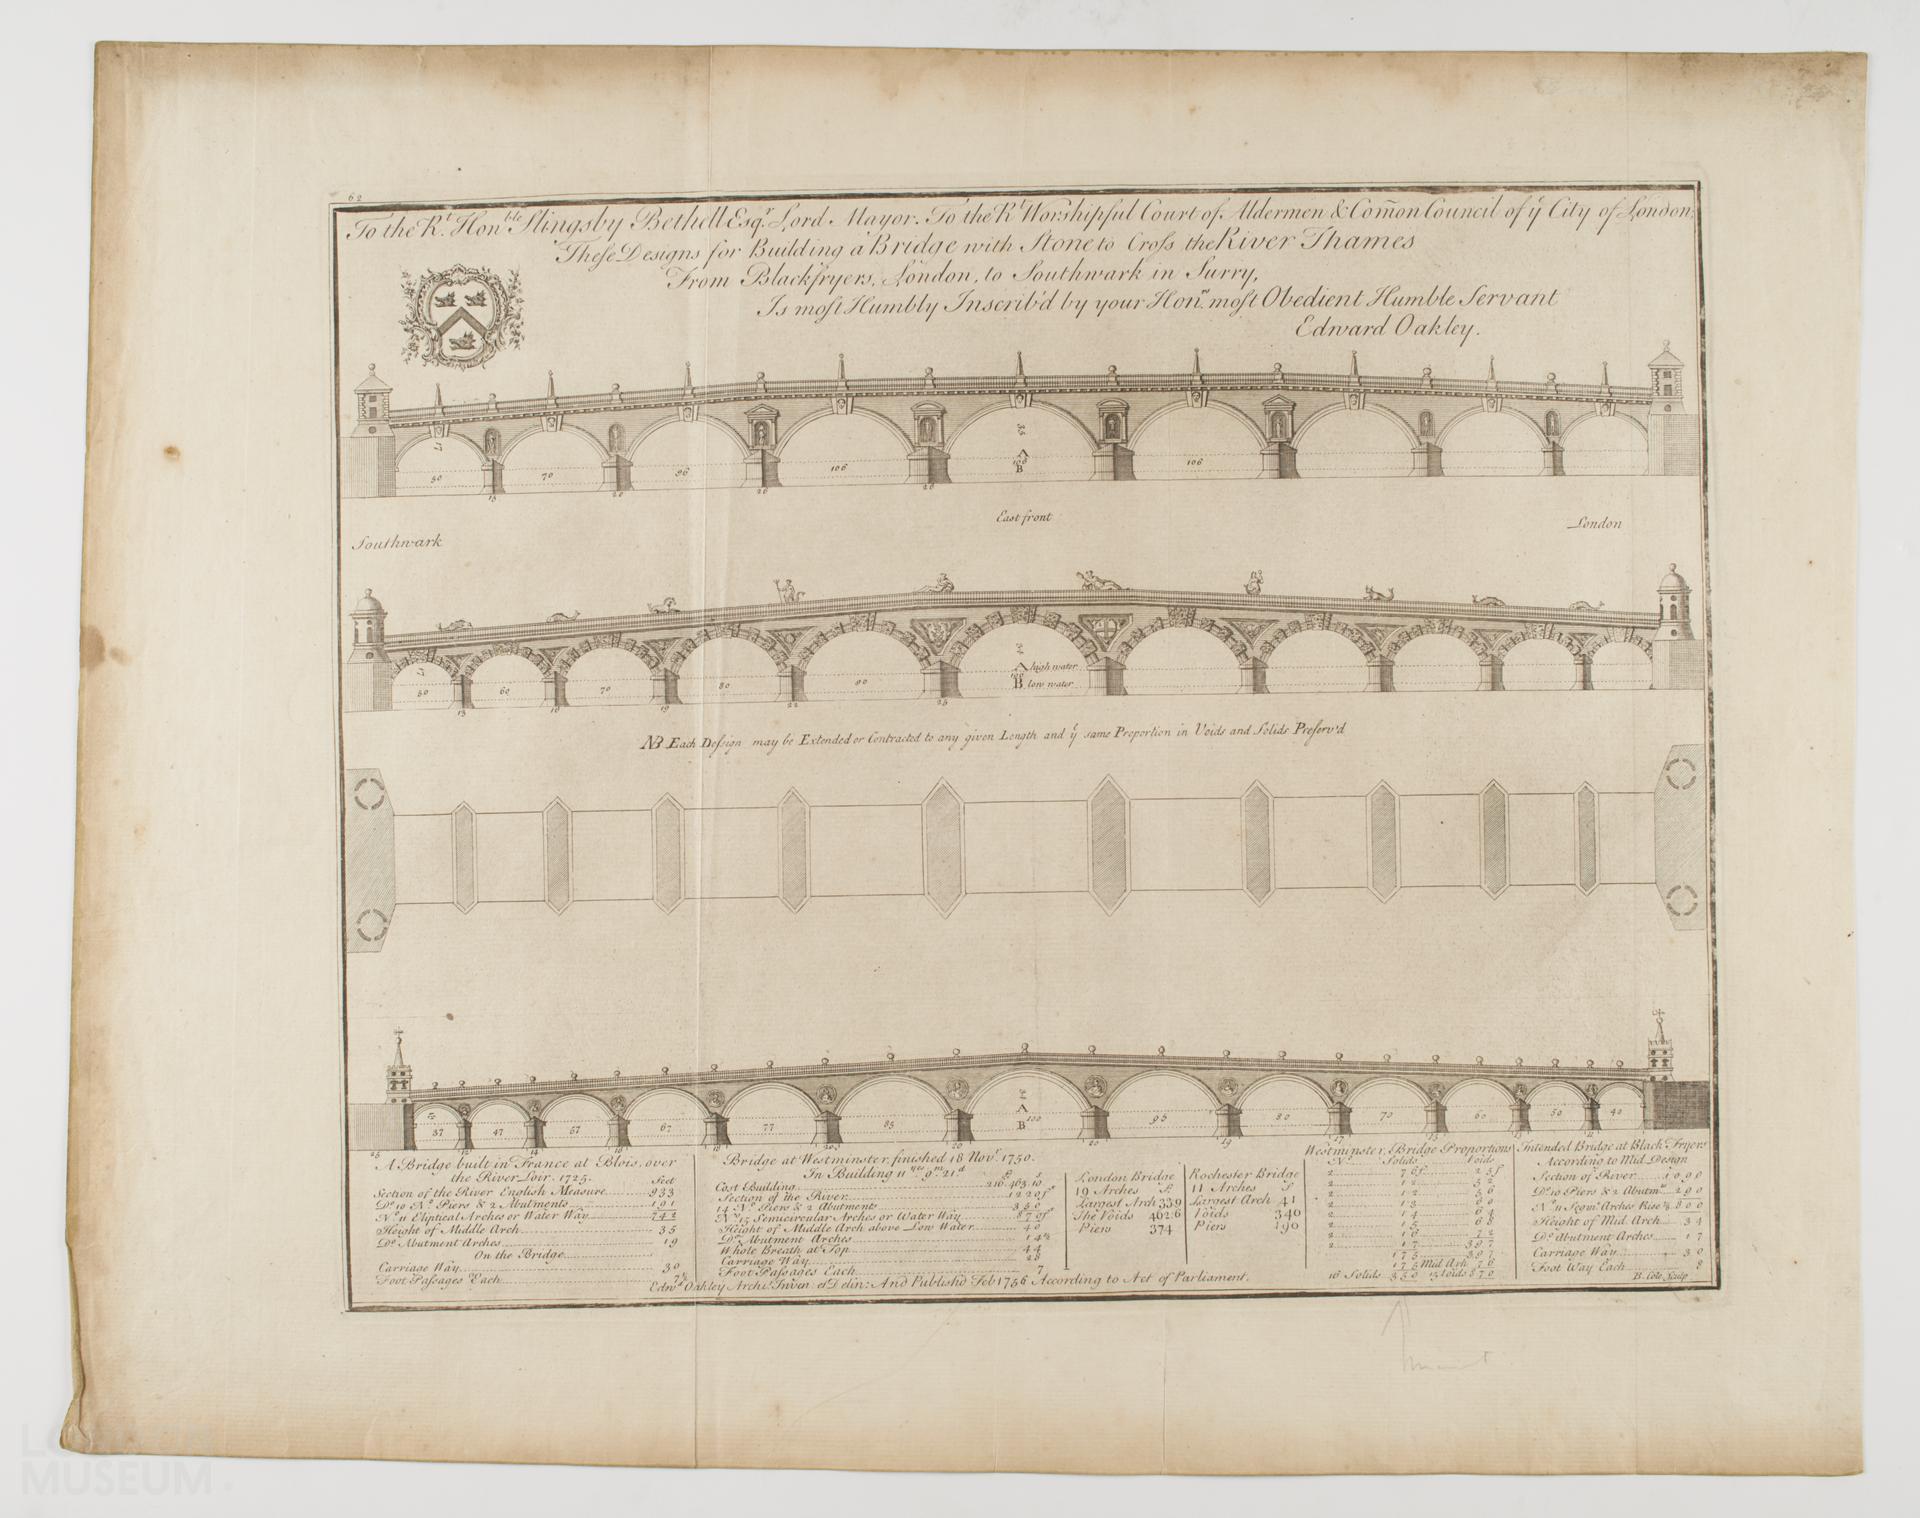 62
To the Rt. Honble Slingsby Bethell Esqr. Lord Mayor. To the Rt Worshipful Court of Aldermen & Com̃on Council of ẏ City of London;
These Designs for Building a Bridge with Stone to Cross the River Thames
From Blackfryers, London, to Southwark in Surry,
Is most Humbly Inscrib'd by your Honrs. most Obedient Humble Servant
Edward Oakley.
17 35 A
50 70 96 106 100 B 106
15 20 26 28
East front
Southwark London
17 34 A high water
50 60 70 80 90 100 B low water
13 16 19 22 25
NB Each Design may be Extended or Contracted to any given Length and ẏ same Proportion in Voids and Solids Preserv'd
A
37 47 57 67 77 85 B 100 95 80 70 60 50 40
A Bridge built in France at Blois, over
the River Loir. 1725. Feet
Section of the River English Measure 933
Do. 10 No. Piers & 2 Abutments 191
No. 11 Eliptical Arches or Water Way 742
Height of Middle Arch 35
Do Abutment Arches 19
On the Bridge
Carriage Way 30
Foot Passages Each 7½
Bridge at Westminster, finished 18 Novr. 1750.
In Building 11 yrs 9ms 21d
Cost Building 218,463.10
Section of the River 1220f
14 No. Piers & 2 Abutments 350
No. 15 Semicircular Arches or Water Way 870f
Height of Middle Arch above Low Water 40
Do. Abutment Arches 14½
Whole Breath at Top 44
Carriage Way 28
Foot Passages Each 7
London Bridge
19 Arches f
Largest Arch
The Voids
Piers 374
Rochester Bridge
11 Arches f
Largest Arch 41
Voids 340
Piers 190
Westminster, Bridge Proportions
No. Solids Voids
2 76f 25f
2 12 52
2 12 56
2 13 60
2 14 64
2 15 68
2 16 72
2 17 397
175 397
175 Mid Arh 76
16 Solids 350 15 Voids 870
Intended Bridge at Black Fryers
According to Mid. Design
Section of River 1090
Do. 10 Piers & 2 Abutmts 290
No. 11 Segmt. Arches Rise ⅓ 800
Height of Mid. Arch 34
Do. Abutment Arches 17
Carriage Way 30
Foot Way Each 8
B. Cole Sculp
Edwd. Oakley Archt. Inven: et Delin: And Publish'd Feb 1756 According to Act of Parliament.
LONDON
MUSEUM